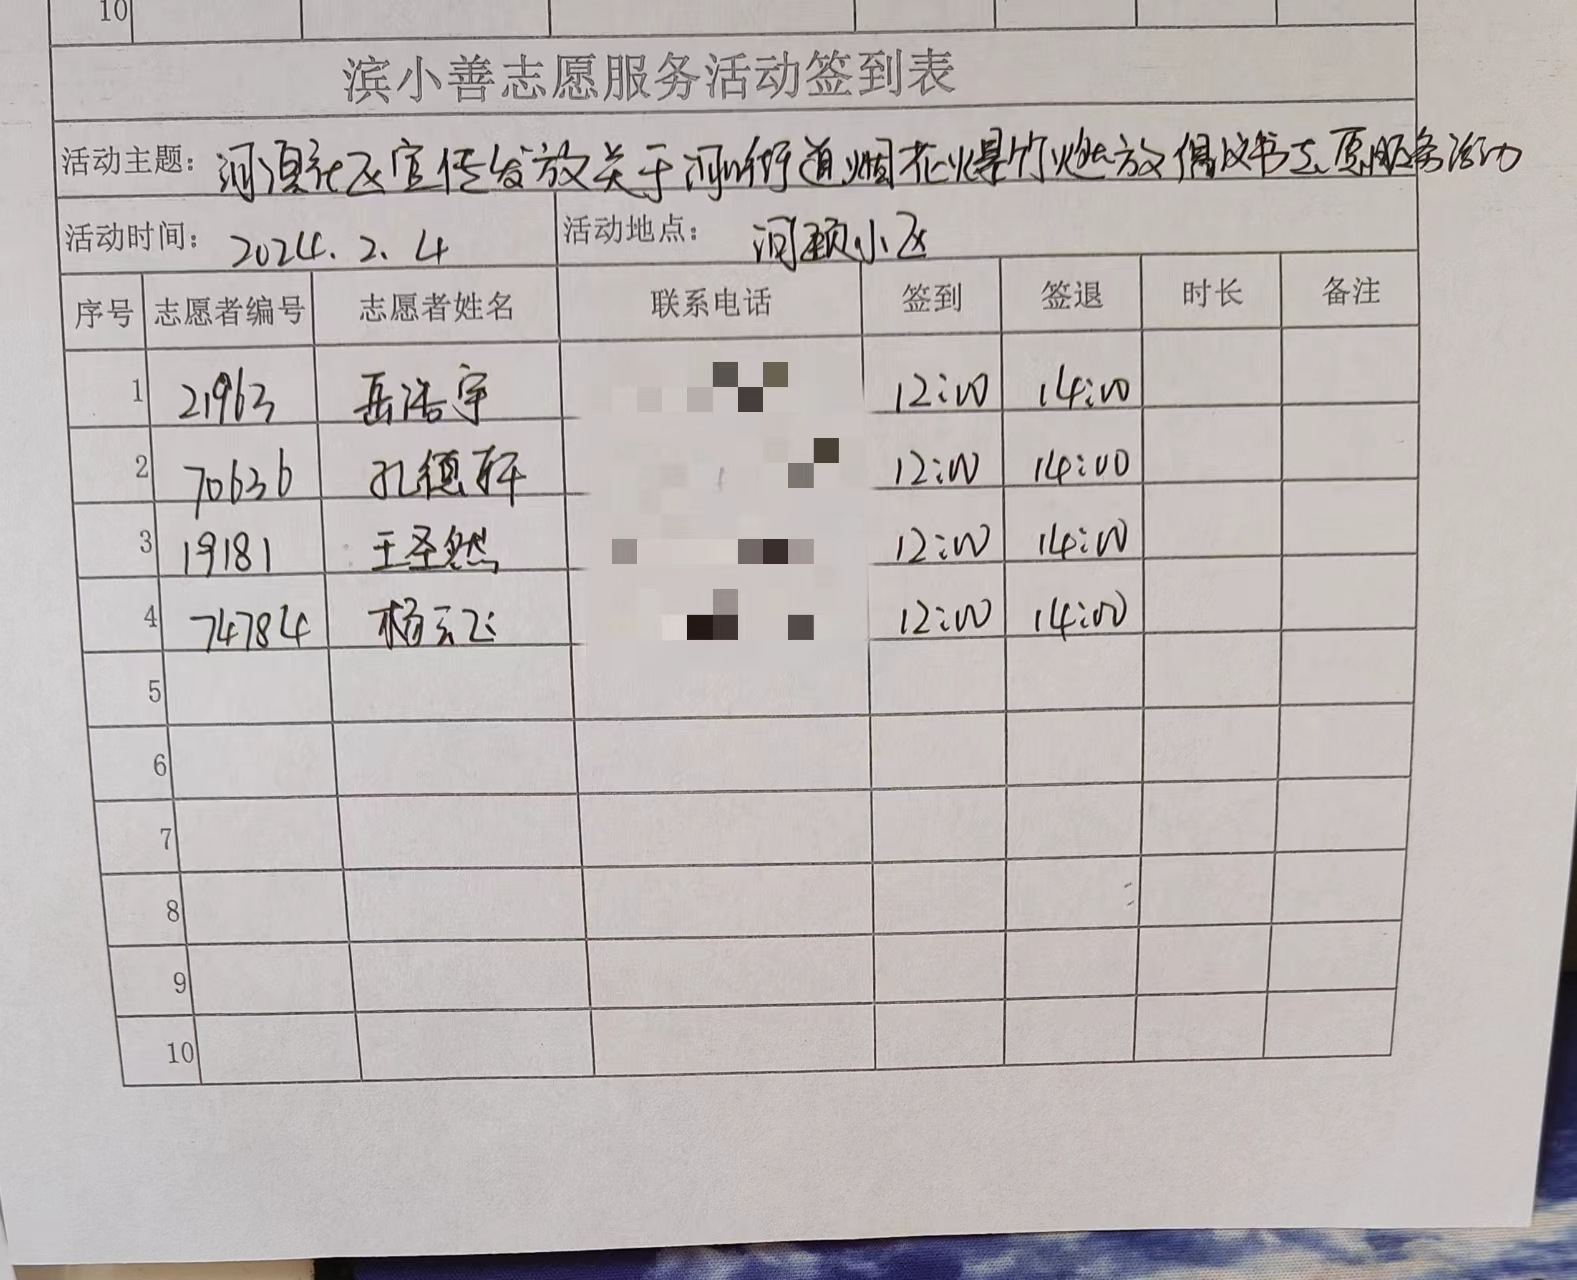 10
滨小善志愿服务活动签到表
活动主题：河溟社区宣传发放关于河山街道烟花爆竹燃放倡议书志愿服务活动
活动时间：2024.2.4 活动地点：河颐小区
序号 志愿者编号 志愿者姓名 联系电话 签到 签退 时长 备注
1 21963 岳浩宇 12:00 14:00
2 70636 孔德轩 12:00 14:00
3 19181 王圣然 12:00 14:00
4 74784 杨云飞 12:00 14:00
5
6
7
8
9
10